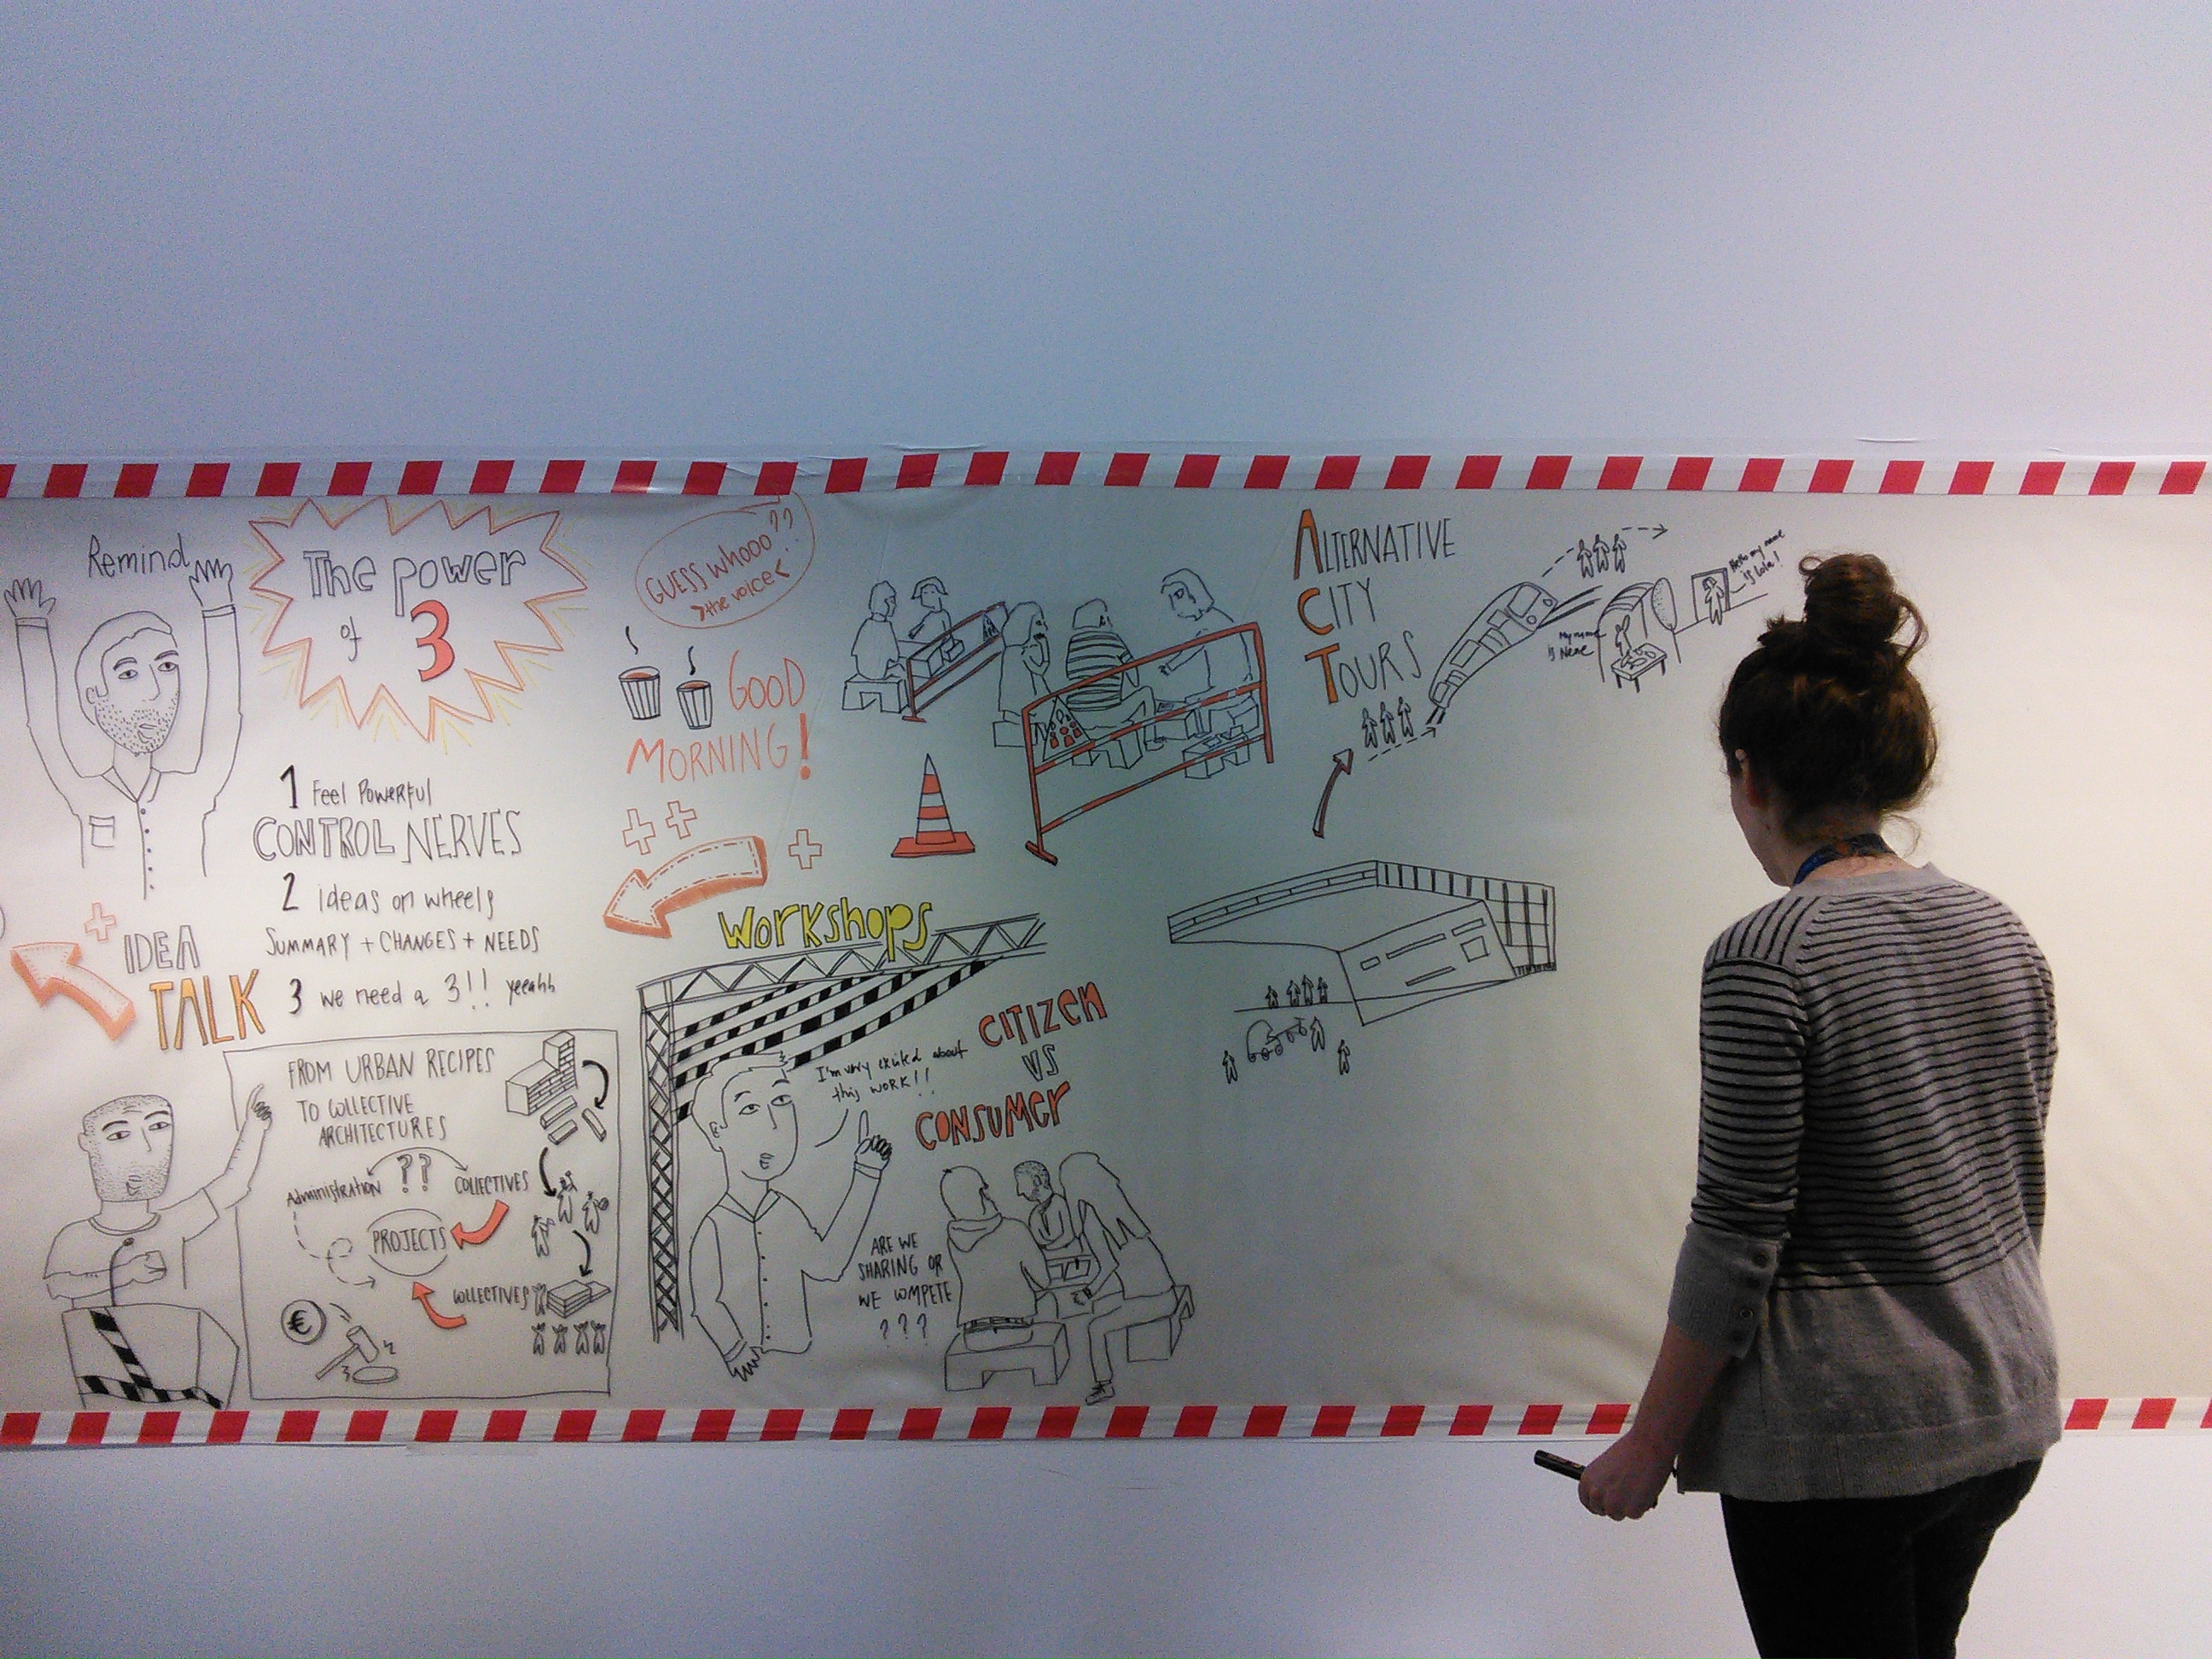 Remind
The power
of 3
1 Feel Powerful
CONTROL NERVES
2 ideas on wheels
SUMMARY + CHANGES + NEEDS
3 we need a 3!! yeeahh
IDEA
TALK
FROM URBAN RECIPES
TO COLLECTIVE
ARCHITECTURES
Administration ?? COLLECTIVES
PROJECTS
COLLECTIVES
€
GUESS whooo??
>the voice<
GOOD
MORNING!
Workshops
I'm very excited about
this work!!
CITIZEN
VS
CONSUMER
ARE WE
SHARING OR
WE COMPETE
???
ALTERNATIVE
CITY
TOURS
My name
is Nene
Hello my name
is Lola!